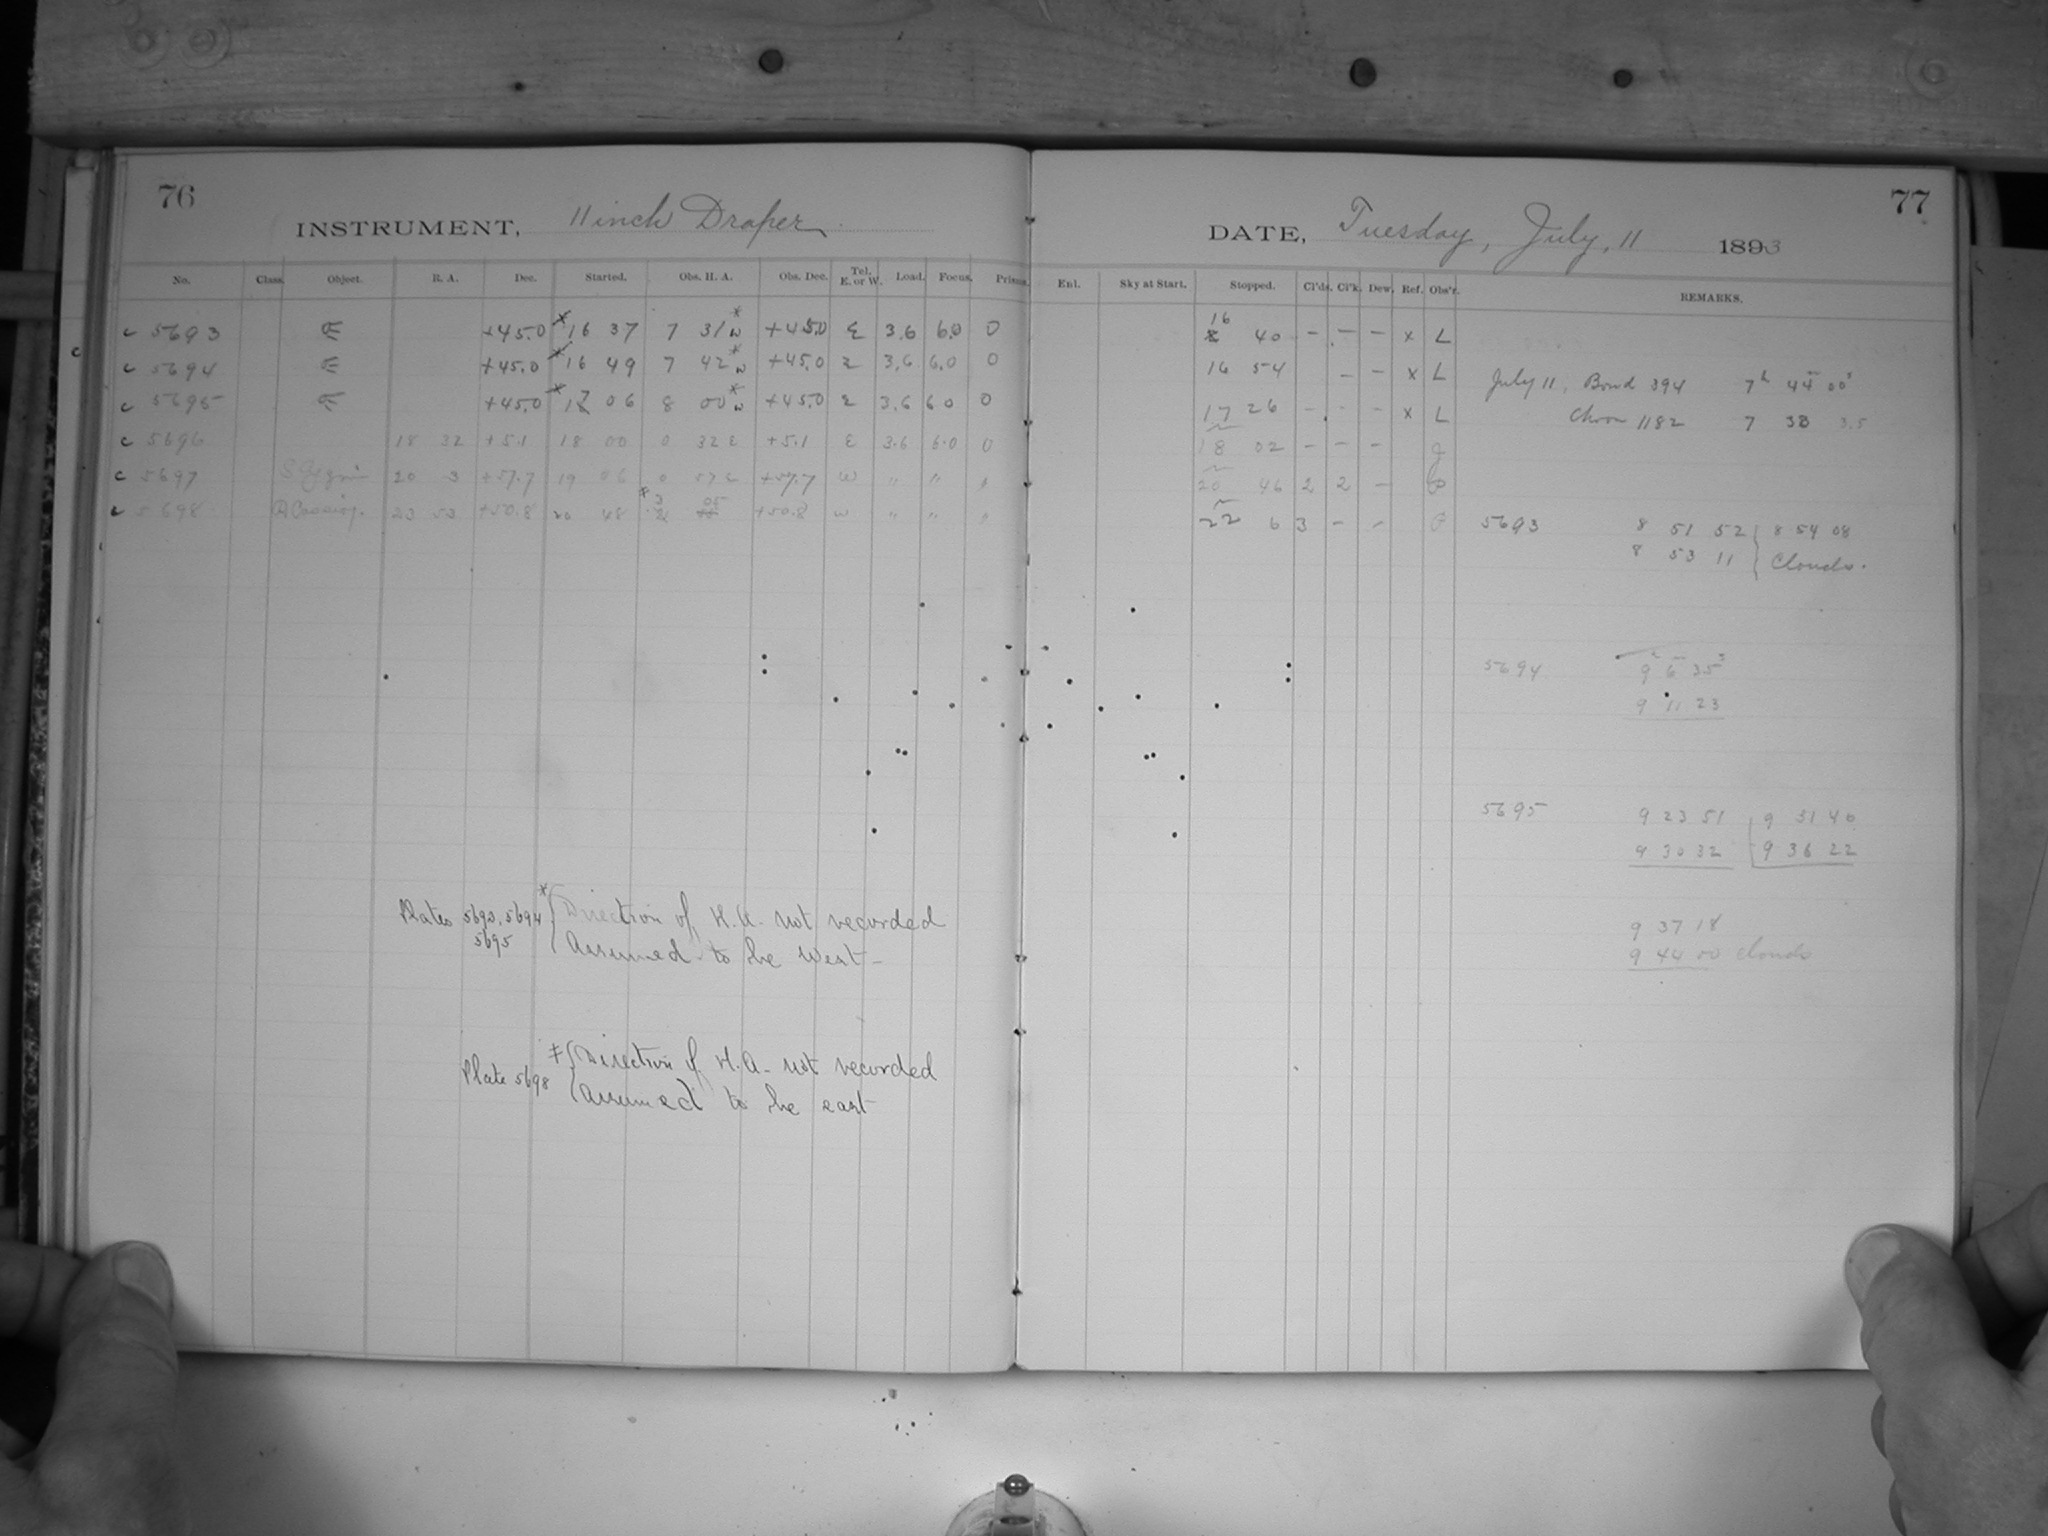 76
INSTRUMENT, 11 inch Draper
No. Class Object. R. A. Dec. Started. Obs. H. A. Obs. Dec. Tel. E. or W. Load. Focus. Prism.
c 5693 +45.0 * 16 37 7 31 w * +45.0 E 3.6 6.0 0
c 5694 +45.0 * 16 49 7 42 w * +45.0 E 3.6 6.0 0
c 5695 +45.0 * 17 06 8 00 w * +45.0 E 3.6 6.0 0
c 5696 18 32 +5.1 18 00 0 32 E +5.1 E 3.6 6.0 0
c 5697 S Cygni 20 3 +57.7 19 06 0 57 E +57.7 W " "
c 5698 R Cassiop. 23 53 +50.8 20 48 * 3 05 +50.8 W " "
Plates 5693, 5694 5695 * Direction of H.A. not recorded
Assumed to be West -
Plate 5698 * Direction of H.A. not recorded
Assumed to be east
77
DATE, Tuesday, July, 11 1893
Enl. Sky at Start. Stopped. Cl'ds. Cl'k. Dew. Ref. Obs'r. REMARKS.
16 40 — — — x L
16 54 — — x L July 11, Bond 394 7h 44m 00s
17 26 - - - x L Chron 1182 7 38 3.5
18 02 - - - J
20 46 2 2 - P
22 6 3 - - P 5693 8 51 52 8 54 08
8 53 11 Clouds.
5694 9 6 35
9 11 23
5695 9 23 51 9 31 40
9 30 32 9 36 22
9 37 18
9 44 00 clouds